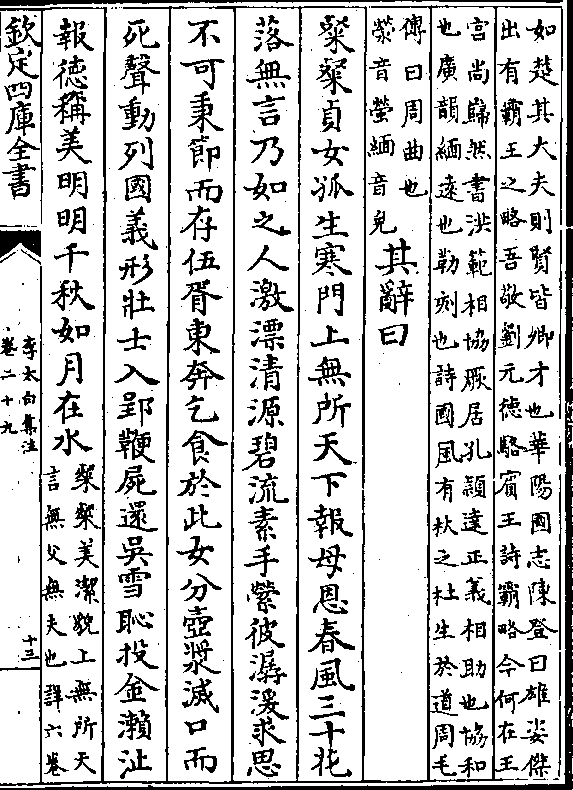 如楚其大夫則賢皆卿才也華陽國志陳登曰雄姿傑
出有霸王之略吾敬劉元德駱賓王詩霸略今何在王
宫尚巋然書洪範相協厥居孔頴達正義相助也協和
也廣韻緬逺也勒刻也詩國風有杕之杜生於道周毛
傳曰周曲也
濴音瑩緬音免
其辭曰
粲粲貞女孤生寒門上無所天下報母恩春風三十花
落無言乃如之人激漂清源碧流素手縈彼潺湲求思
不可秉節而存伍胥東奔乞食於此女分壺漿滅口而
死聲動列國義形壯士入郢鞭屍還吳雪恥投金瀨沚
報德稱美明明千秋如月在水
粲粲美潔貌上無所天
言無父無夫也詳六卷
欽定四庫全書
李太白集注
卷二十九
十三